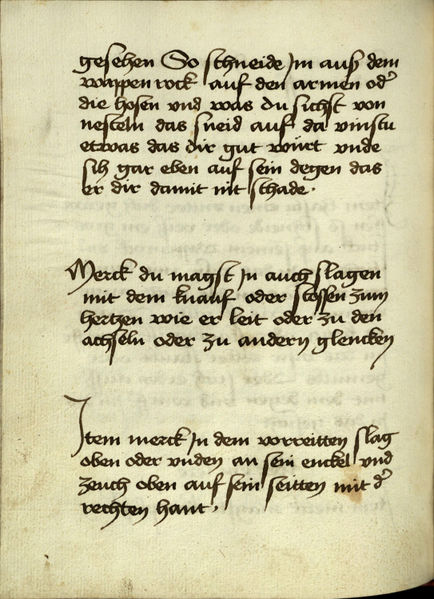 gesehen So schneide Im auß dem
wappen rock auf den armen od'
die hosen vnd was du sichst von
nesteln das sneid auf da vinstu
etwas das dir gut würt vnde
sih gar eben auf sein degen das
er dir damit nit schade.
Merck du magst In auch slagen
mit dem knauf oder stossen zum
hertzen wie er leit oder zu den
achseln oder zu andern glencken
Item merck In dem vorreitten slag
oben oder vnden an sein enckel vnd
zeuch oben auf sein seitten mit d'
rechten hant.